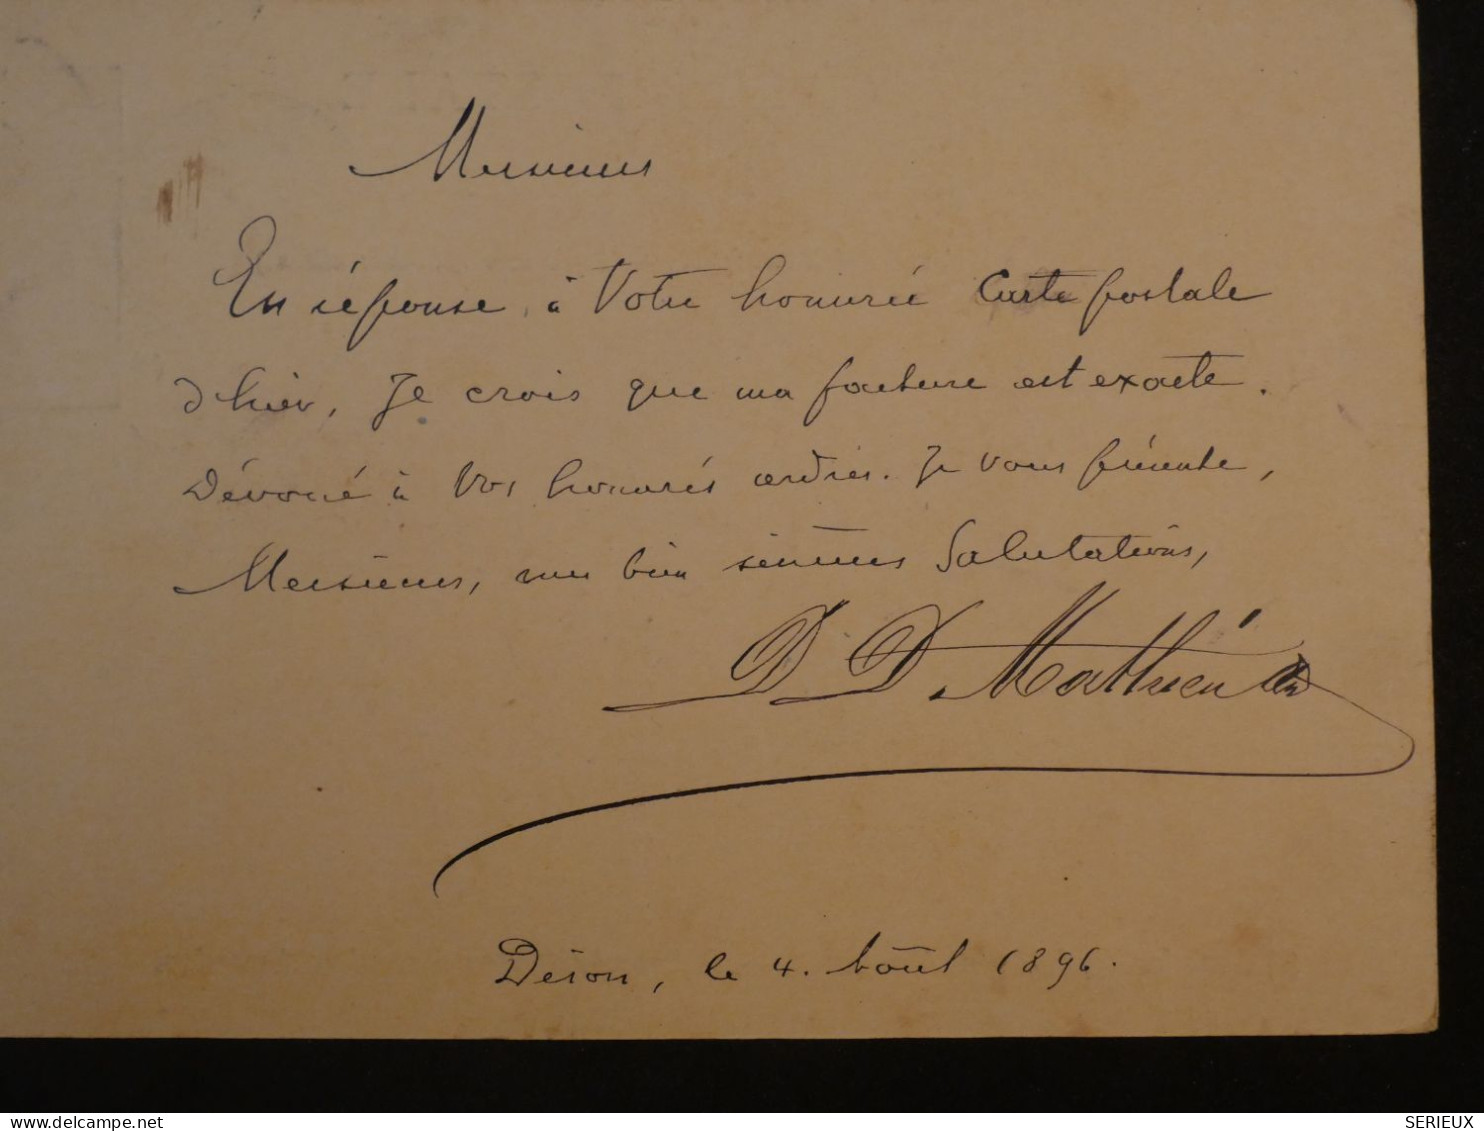 Messieurs
En réponse à Votre honorée Carte postale
d'hier, Je crois que ma facture est exacte.
Dévoué à Vos honorés ordres. Je vous présente,
Messieurs, mes bien sincères Salutations,
D. D. Mathieu
le 4. Août 1896.
www.delcampe.net
SERIEUX